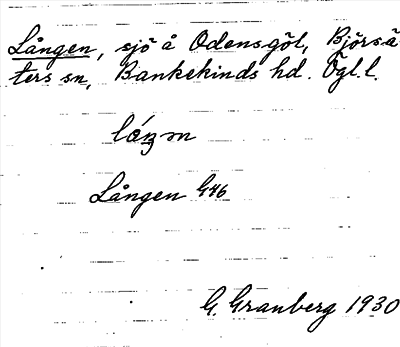 Lången, sjö å Odensgöl, Björsä
ters sn, Bankekinds hd. Ögl. l.
Lången G46
G. Granberg 1930